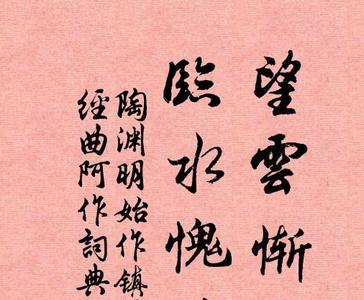 望雲惭
臨水愧
陶渊明始作镇
經曲阿作詞典